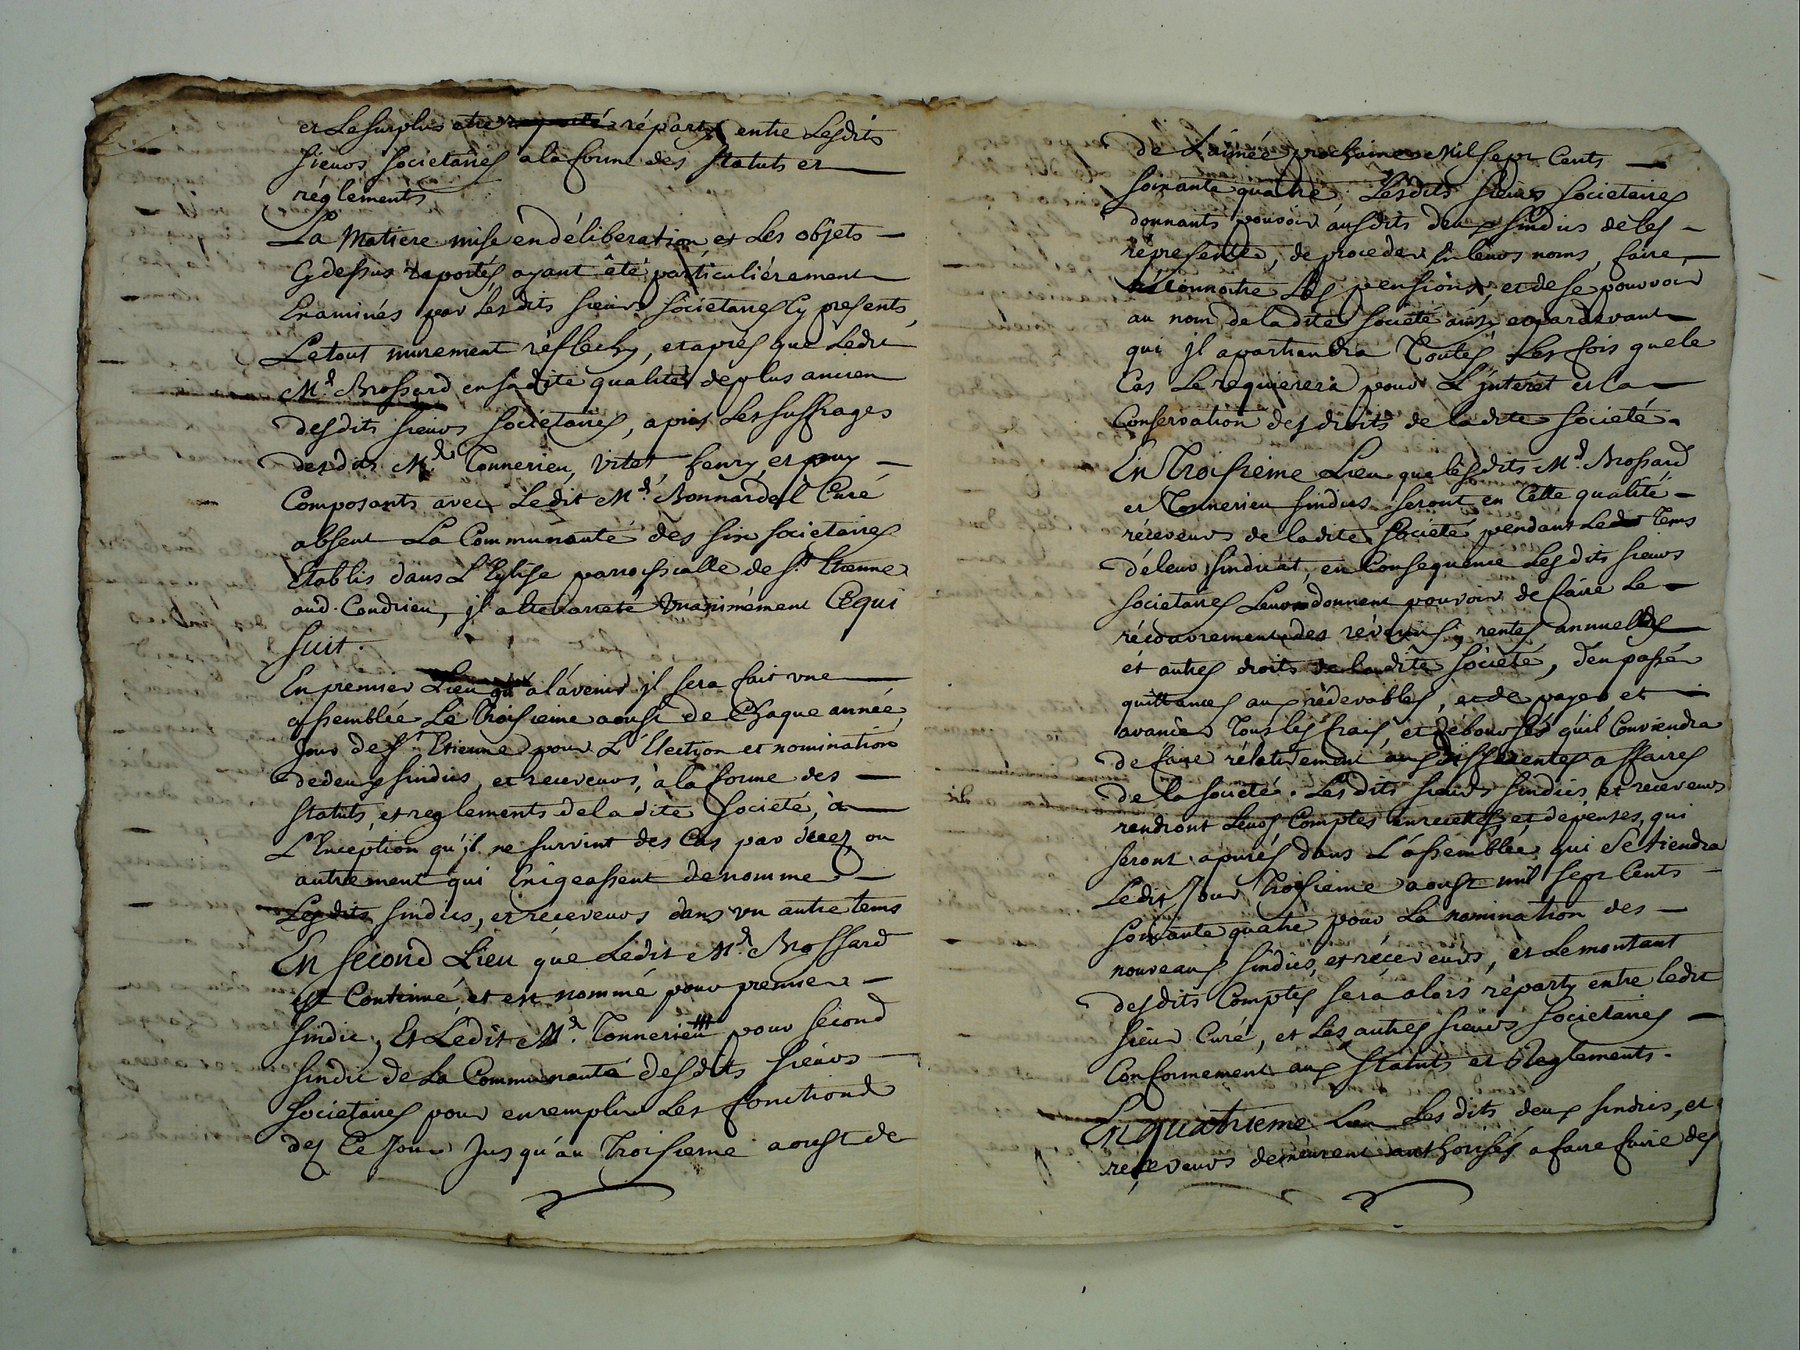 et le surplus etre réparty entre Lesdits
sieurs societaires a la forme des statuts et
réglements
La Matiere mise en déliberation et Les objets
Cy dessus raportés, ayant êté particuliérement
Examinés par Lesdits sieurs societaires Cy presents,
Le tout murement réflechy, et aprés que Ledit
Mr. Brossard en sa dite qualité de plus ancien
desdits sieurs societaires, a pris Les suffrages
desdits Mrs. Tonnerieu, Vitet, henry, et puy
Composants avec Ledit Mr. Bonnardel Curé
absent La Communauté des six societaires
Etablis dans L'Eglise parroissialle de St. Etienne
aud. Condrieu, il a ete arreté Unanimément Ce qui
suit.
En premier Lieu qu'a l'avenir il sera fait une
assemblée Le Troisieme aoust de Chaque année,
jour de St. Etienne pour L'Election et nomination
de deux sindics, et receveurs, à la forme des
statuts, et reglements de la dite Societé, à
L'Exception qu'il ne survint des Cas par decez, ou
autrement qui Exigeassent de nommer
Lesdits sindics, et réceveurs dans un autre tems
En second Lieu que Ledit Mr. Brossard
est Continué et est nommé pour premier
sindic, Et Ledit Mr. Tonnerieu pour second
sindic de La Communauté desdits sieurs
societaires pour en remplir Les fonctions
dez Ce Jour Jusqu'au Troisieme aoust de
de L'année prochaine Mil sept Cents
soixante quatre, Lesdits sieurs societaires
donnants pouvoir auxdits deux sindics de les
répresenter, de proceder en leurs noms, faire
réconnoitre Les pensions, et de se pourvoir
au nom de la dite societé ainsy et pardevant
qui il apartiendra Toutes Les fois que le
Cas Le requierera pour L'interet et la
Conservation des droits de la dite societé.
En Troisieme Lieu que lesdits Mrs. Brossard
et Tonnerieu sindics seront en Cette qualité
réceveurs de la dite Societé pendant Led. Tems
de leur sindicat, en Consequence Lesdits sieurs
societaires Leur donnent pouvoir de faire Le
récouvrement des révenus, rentes annuelles
et autres droits de la dite société, d'en passer
quittances aux rédevables, et de payer et
avancer Tous les frais, et débourses qu'il Conviendra
de faire rélativement aux differentes affaires
de la societé. Lesdits sieurs sindics, et receveurs
rendront Leurs Comptes en recettes, et dépenses, qui
seront apurés dans L'assemblée qui se tiendra
Ledit Jour Troisieme aoust mil sept Cents
soixante quatre pour La nomination des
nouveaux sindics, et réceveurs, et Le montant
desdits Comptes sera alors réparty entre ledit
sieur Curé, et Les autres sieurs societaires
Conformement aux statuts et Reglements.
En quatrieme Lieu Lesdits deux sindics, et
receveurs demeurent authorisés a faire faire des